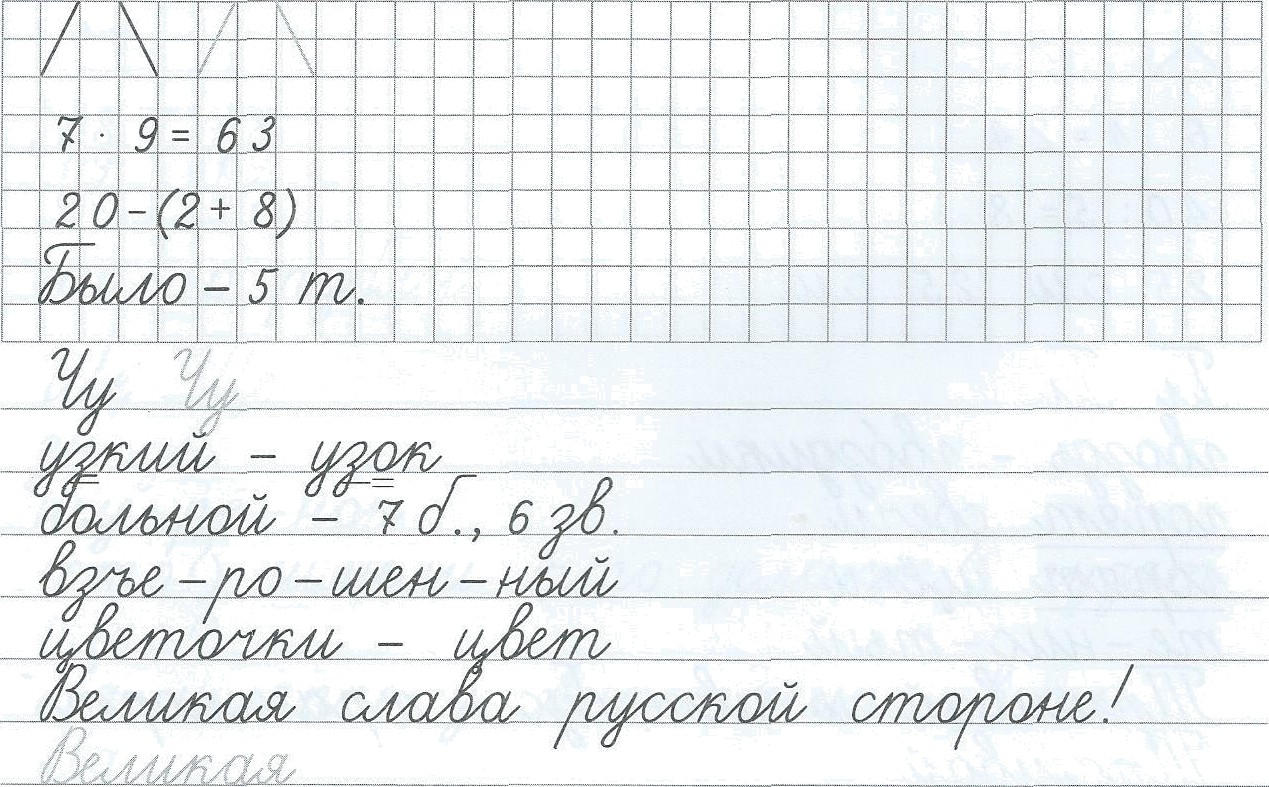 7 · 9 = 63
20 - (2 + 8)
Было – 5 т.
Чу Чу
узкий – узок
больной – 7 б., 6 зв.
взъе – ро – шен – ный
цветочки – цвет
Великая слава русской стороне!
Великая